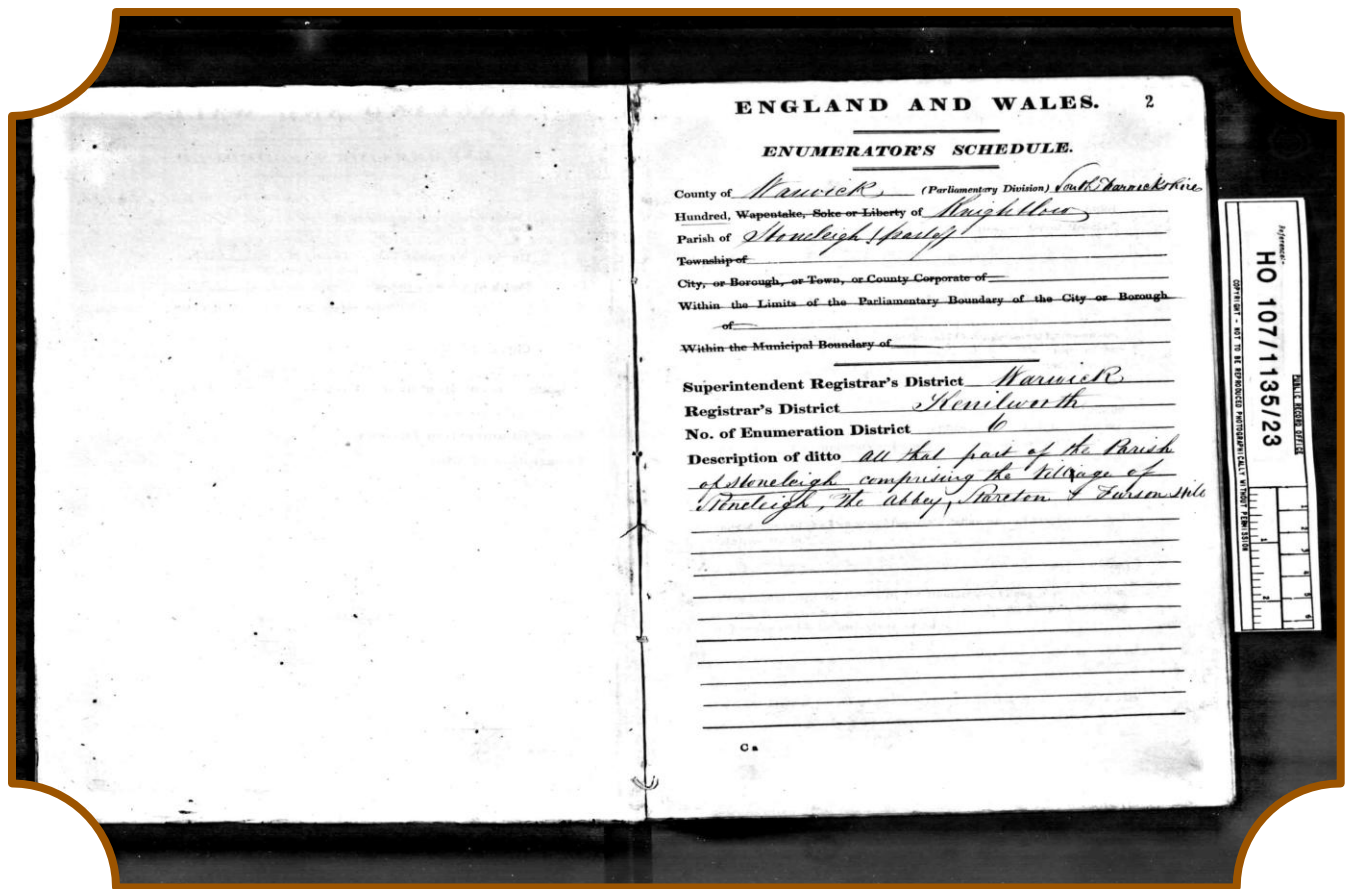 ENGLAND AND WALES. 2
ENUMERATOR'S SCHEDULE.
County of Warwick (Parliamentary Division) South Warwickshire
Hundred, Wapentake, Soke or Liberty of Knightlow
Parish of Stoneleigh (part of)
Township of
City, or Borough, or Town, or County Corporate of
Within the Limits of the Parliamentary Boundary of the City or Borough
of
Within the Municipal Boundary of
Superintendent Registrar's District Warwick
Registrar's District Kenilworth
No. of Enumeration District 6
Description of ditto all that part of the Parish
of Stoneleigh comprising the Village of
Stoneleigh, The Abbey, Stareton & Hill
C a
Reference:-
HO 107/1135/23
PUBLIC RECORD OFFICE
COPYRIGHT - NOT TO BE REPRODUCED PHOTOGRAPHICALLY WITHOUT PERMISSION
1
2
1
2
3
4
5
6